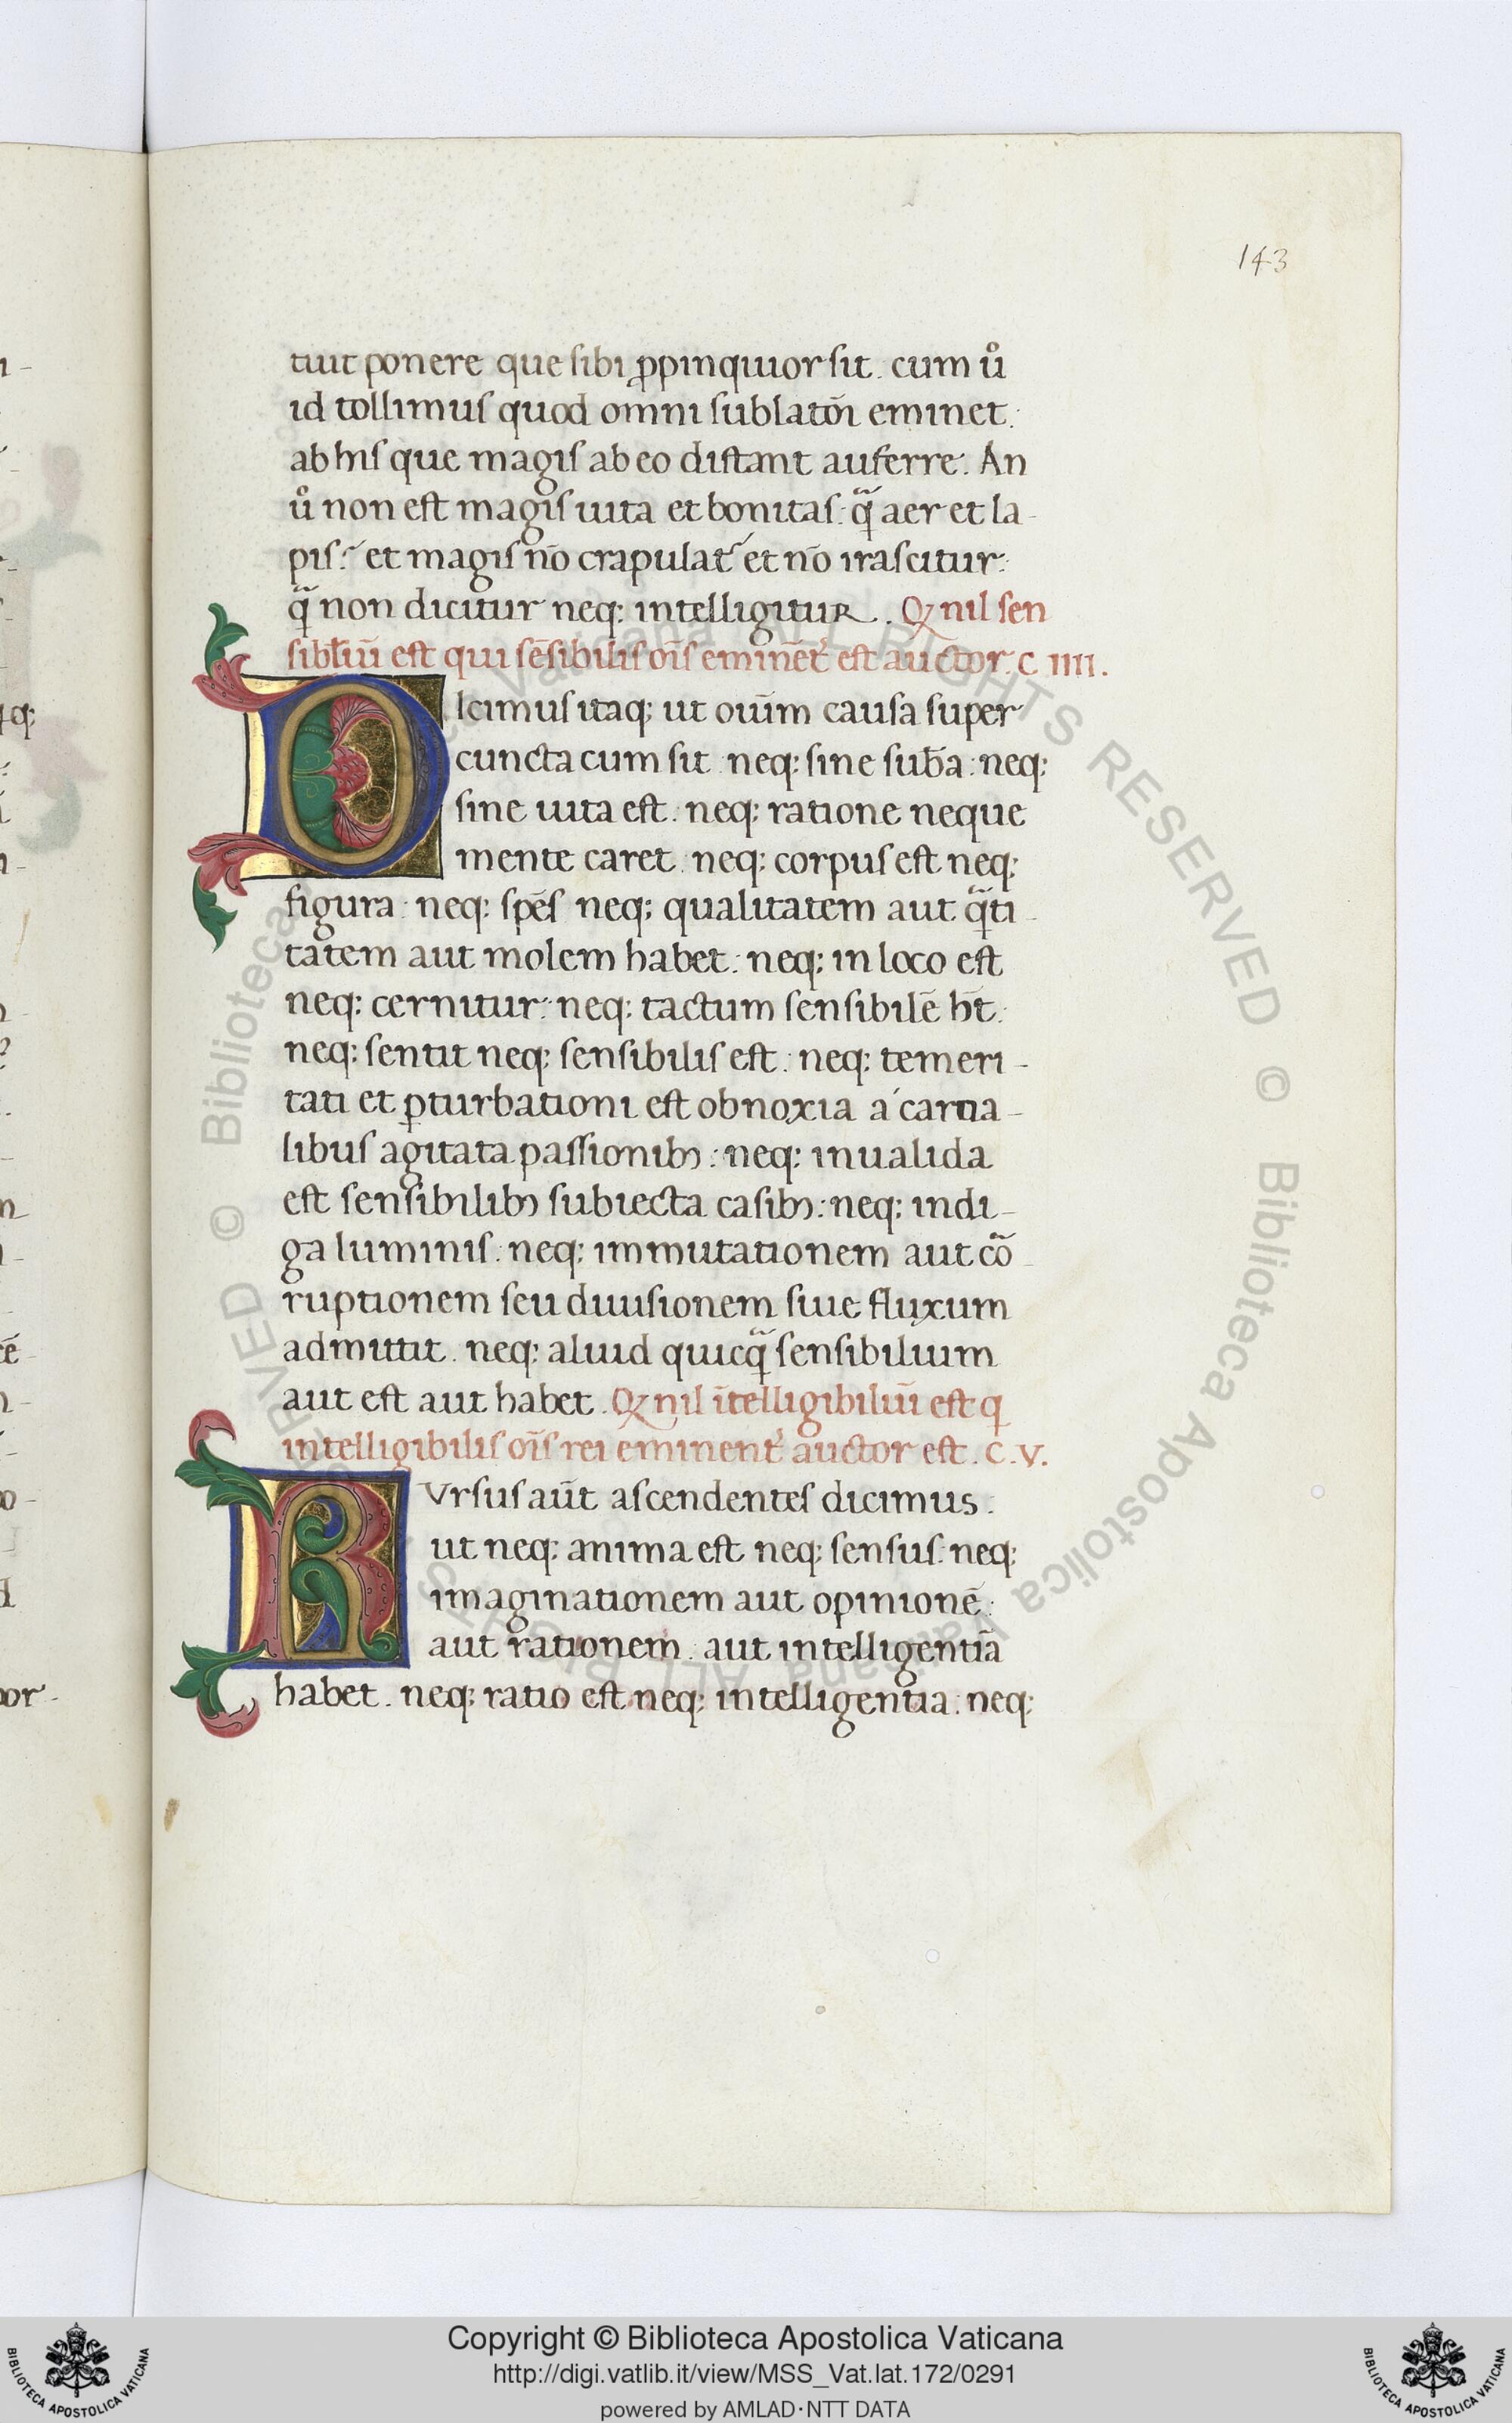 143
tuit ponere que sibi ꝓpinquior sit. cum u̓o
id tollimus quod omni sublatōi eminet:
ab hiis que magis ab eo distant auferre. An
u̓o non est magis uita et bonitas: q̄ aer et la-
pis? et magis nō crapulat᷑ et nō irascitur:
q̄ non dicitur neq; intelligitur. Q nil sen
sibliū est qui sēsibilis oīs eminēt᷑ est auctor. C. IIII.
DIcimus itaq; ut oīum causa super
cuncta cum sit neq; sine sub̄a: neq;
sine uita est. neq; ratione neque
mente caret. neq; corpus est neq;
figura: neq; spēs neq; qualitatem aut q̄ti-
tatem aut molem habet: neq; in loco est
neq; cernitur: neq; tactum sensibilē h̄t:
neq; sentit neq; sensibilis est: neq; temeri-
tati et ꝑturbationi est obnoxia a carna-
libus agitata passionibꝫ: neq; inualida
est sensibilibꝫ subiecta casibꝫ: neq; indi-
ga luminis: neq; immutationem aut cō
ruptionem seu diuisionem siue fluxum
admittit. neq; aliud quicq̄ sensibilium
aut est aut habet. Q nil ītelligibiliū est q
intelligibilis oīs rei eminent᷑ auctor est. C. V.
RVrsus aūt ascendentes dicimus:
ut neq; anima est neq; sensus: neq;
imaginationem aut opinionē:
aut rationem. aut intelligentiā
habet. neq; ratio est neq; intelligentia: neq;
Copyright © Biblioteca Apostolica Vaticana
http://digi.vatlib.it/view/MSS_Vat.lat.172/0291
powered by AMLAD·NTT DATA